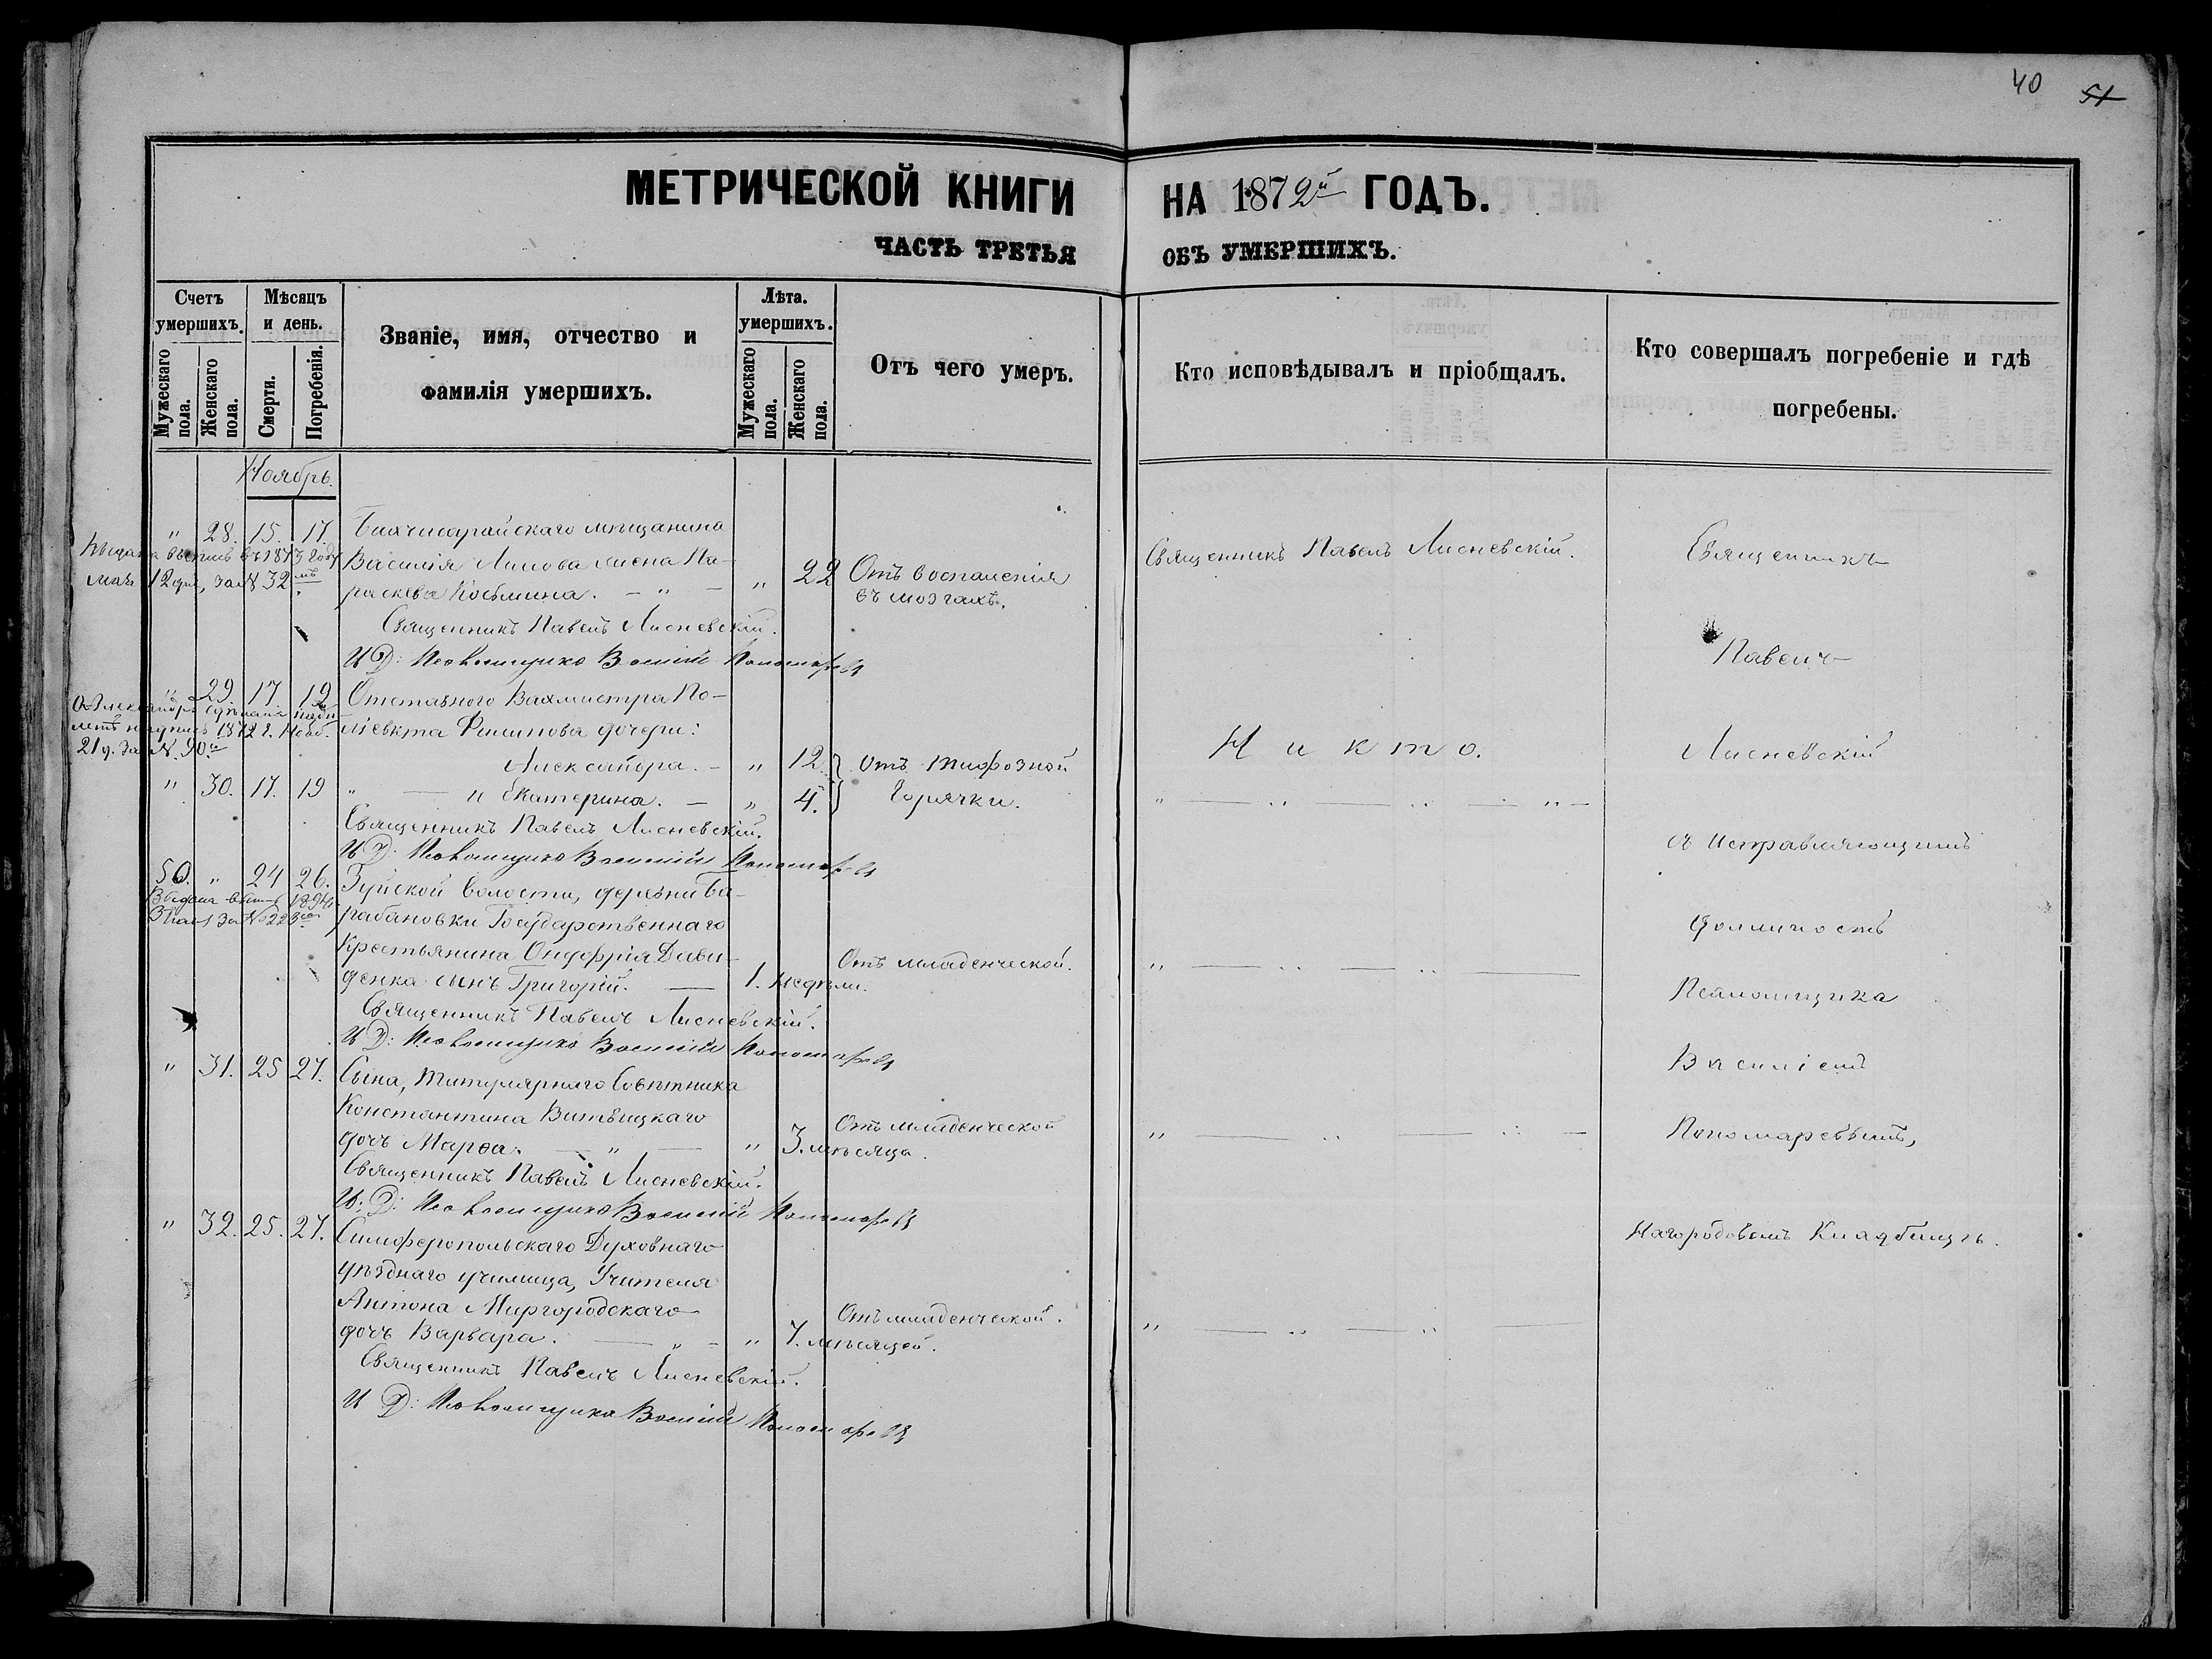 40 51
МЕТРИЧЕСКОЙ КНИГИ НА 1872й ГОДЪ.
ЧАСТЬ ТРЕТЬЯ ОБЪ УМЕРШИХЪ.
Счетъ умершихъ.
Мужескаго пола.
Женскаго пола.
Мѣсяцъ и день.
Смерти.
Погребенія.
Званіе, имя, отчество и
фамилія умершихъ.
Лѣта. умершихъ.
Мужескаго пола.
Женскаго пола.
Отъ чего умеръ.
Кто исповѣдывалъ и пріобщалъ.
Кто совершалъ погребеніе и гдѣ
погребены.
Ноябрь.
" 28. 15. 17. Бахчисарайскаго мѣщанина
Василія Лилова жена Па-
раскева Косьмина. — " — " 22 Отъ воспаленія
въ мозгахъ.
Священникъ Павелъ Лисневскій.
Выдана выпись въ 1873 году
мая 12 дня, за № 32мъ
Священникъ Павелъ Лисневскій.
И Д: Псаломщика Василій Пономаревъ
" 29. 17. 19. Отставного Вахмистра По-
ліевкта Филипова дочери:
Александра. — " 12. Отъ тифозной
Никто.
надпись 1872 г. Нояб.
21 д. за № 90.
" 30. 17. 19 " — и Екатерина. — " 4. горячки.
" — " — " — " —
Священникъ Павелъ Лисневскій.
И Д: Псаломщика Василій Пономаревъ
50. " 24 26. Зуйской волости, деревни Ба-
рабановки Государственнаго
Крестьянина Онуфрія Дави-
денка сынъ Григорій. — 1. недѣли. Отъ младенческой.
" — " — " —
Выдана выпись 1894
за № 223
Священникъ Павелъ Лисневскій.
И Д: Псаломщика Василій Пономаревъ
" 31. 25 27. Сына, Титулярнаго Совѣтника
Константина Витвицкаго
дочь Марѳа. — " — " 3. мѣсяца. Отъ младенческой
" — " — " —
Священникъ Павелъ Лисневскій.
И. Д: Псаломщика Василій Пономаревъ
" 32. 25. 27. Симферопольскаго Духовнаго
уѣзднаго училища, Учителя
Антона Миргородскаго
дочь Варвара. — " — " 7. мѣсяцей. Отъ младенческой.
" — " — " —
Священникъ Павелъ Лисневскій.
И Д: Псаломщика Василій Пономаревъ
Священникъ
Павелъ
Лисневскій
съ исправляющимъ
должность
Псаломщика
Василіемъ
Пономаревымъ,
На городовомъ Кладбищѣ.